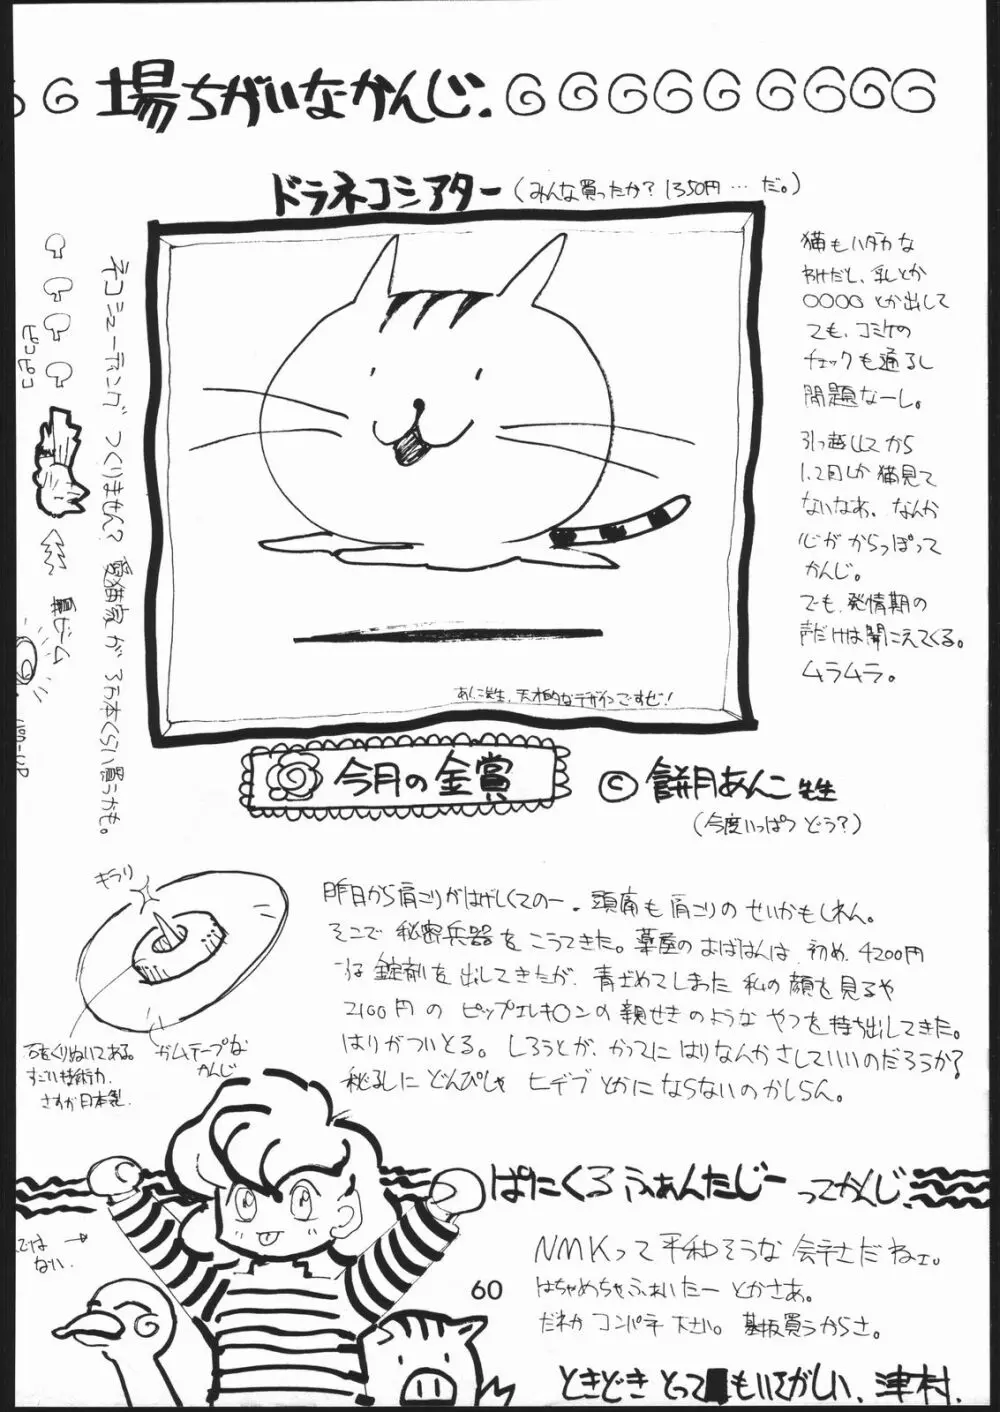 場ちがいなかんじ.
ドラネコシアター(みんな買ったか?1350円…だ。)
猫もハダカな
わけだし、乳とか
○○○○とか出して
ても、コミケの
チェックも通るし
問題なーし。
引っ越ししてから
1、2回しか猫見て
ないなあ、なんか
心がからっぽって
かんじ。
でも、発情期の
声だけは聞こえてくる。
ムラムラ。
ネコシューティングつくりません?愛猫家が3万本くらい買うかも。
ピコピコ
ビーム
あんこ先生、天才的なデザインですぜ!
今月の金賞
©餅月あんこ先生
(今度いっぱつどう?)
キラリ
石をくりぬいてある。
すごい技術力.
さすが日本製.
ガムテープな
かんじ
昨日から肩こりがはげしくてのー.頭痛も肩こりのせいかもしれん。
そこで秘密兵器をこうてきた。薬屋のおばはんは、初め、4200円
の錠剤を出してきたが、青ざめてしまった私の顔を見るや
2100円のピップエレキ○ンの親せきのようなやつを持ち出してきた。
はりがついとる。しろうとが、かってにはりなんかさしていいのだろうか?
秘孔にどんぴしゃヒデブとかにならないのかしらん。
ぱにくるふぁんたじーってかんじ.
ではない.
NMKって平和そうな会社だねェ。
はちゃめちゃふぁいたーとかさあ。
だれかコンパチ下さい。基板買うからさ。
ときどきとってもいてかしい、津村.
60